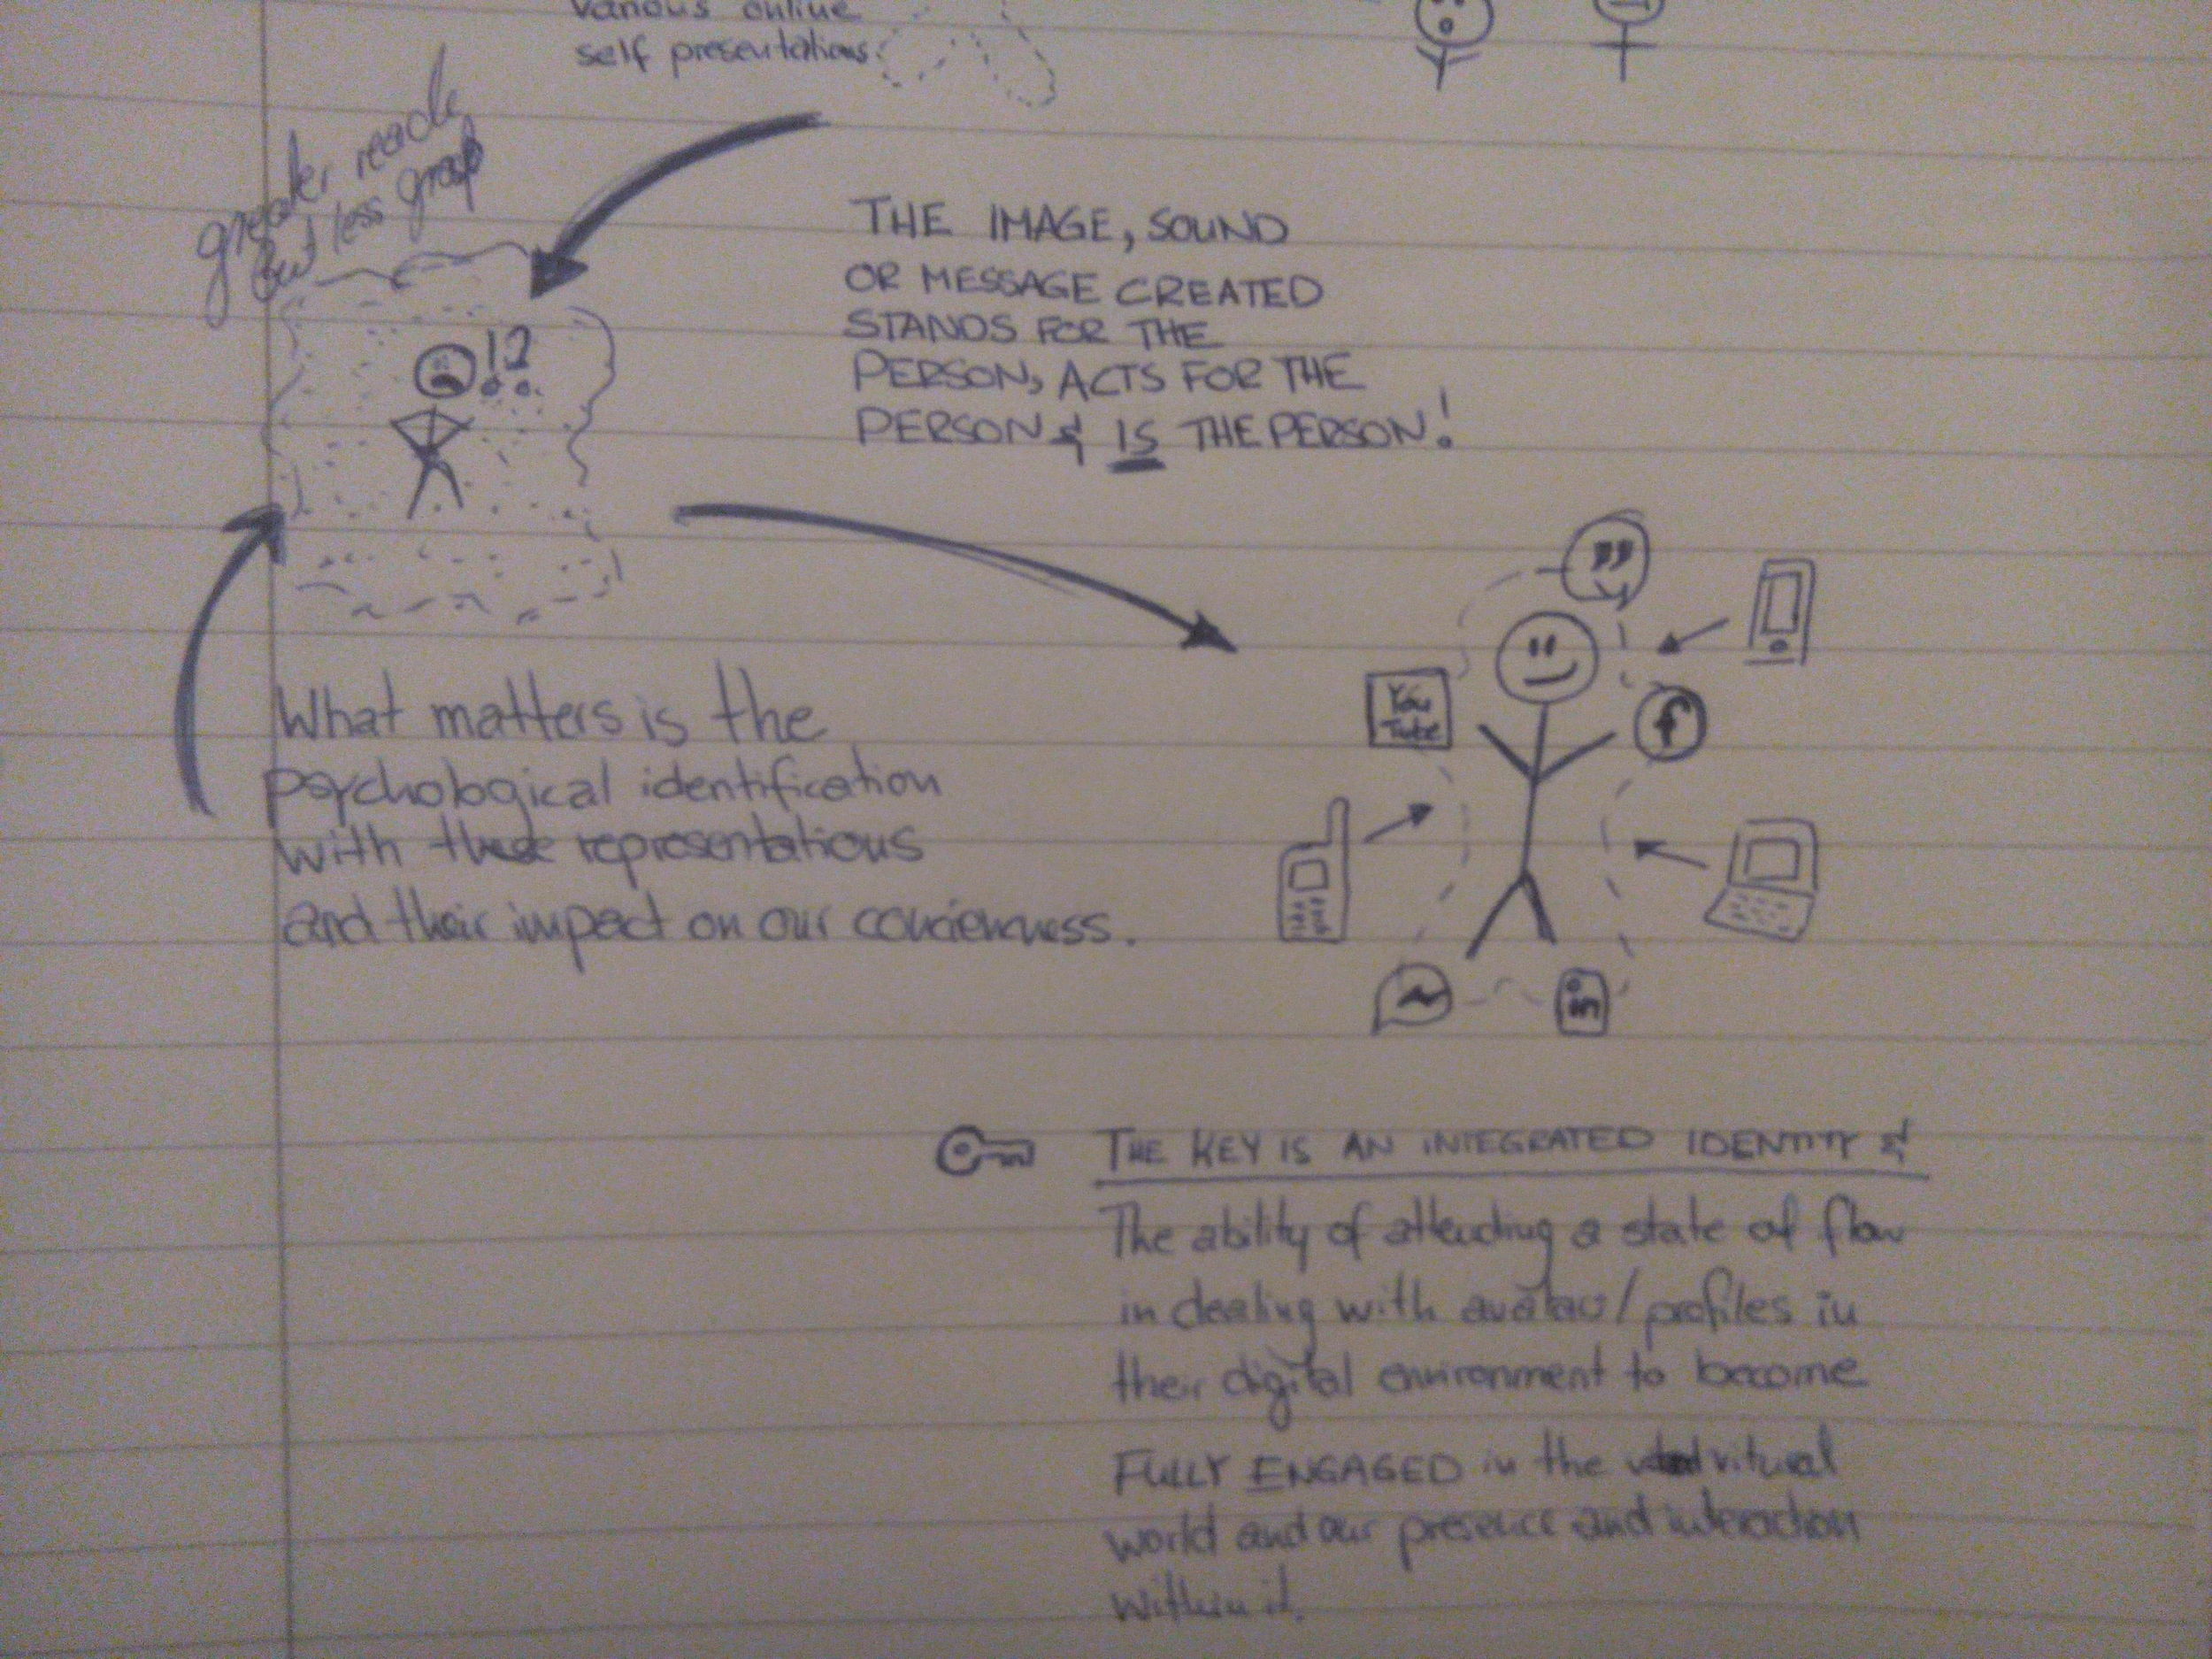 various online
self presentations.
greater reach
but less grasp
!?
THE IMAGE, SOUND
OR MESSAGE CREATED
STANDS FOR THE
PERSON, ACTS FOR THE
PERSON & IS THE PERSON!
What matters is the
psychological identification
with these representations
and their impact on our
”
You
Tube
f
in
THE KEY IS AN INTEGRATED IDENTITY &
The ability of attending a state of flow
in dealing with avatars/profiles in
their digital environment to become
FULLY ENGAGED in the vitural
world and our presence and interaction
within it.